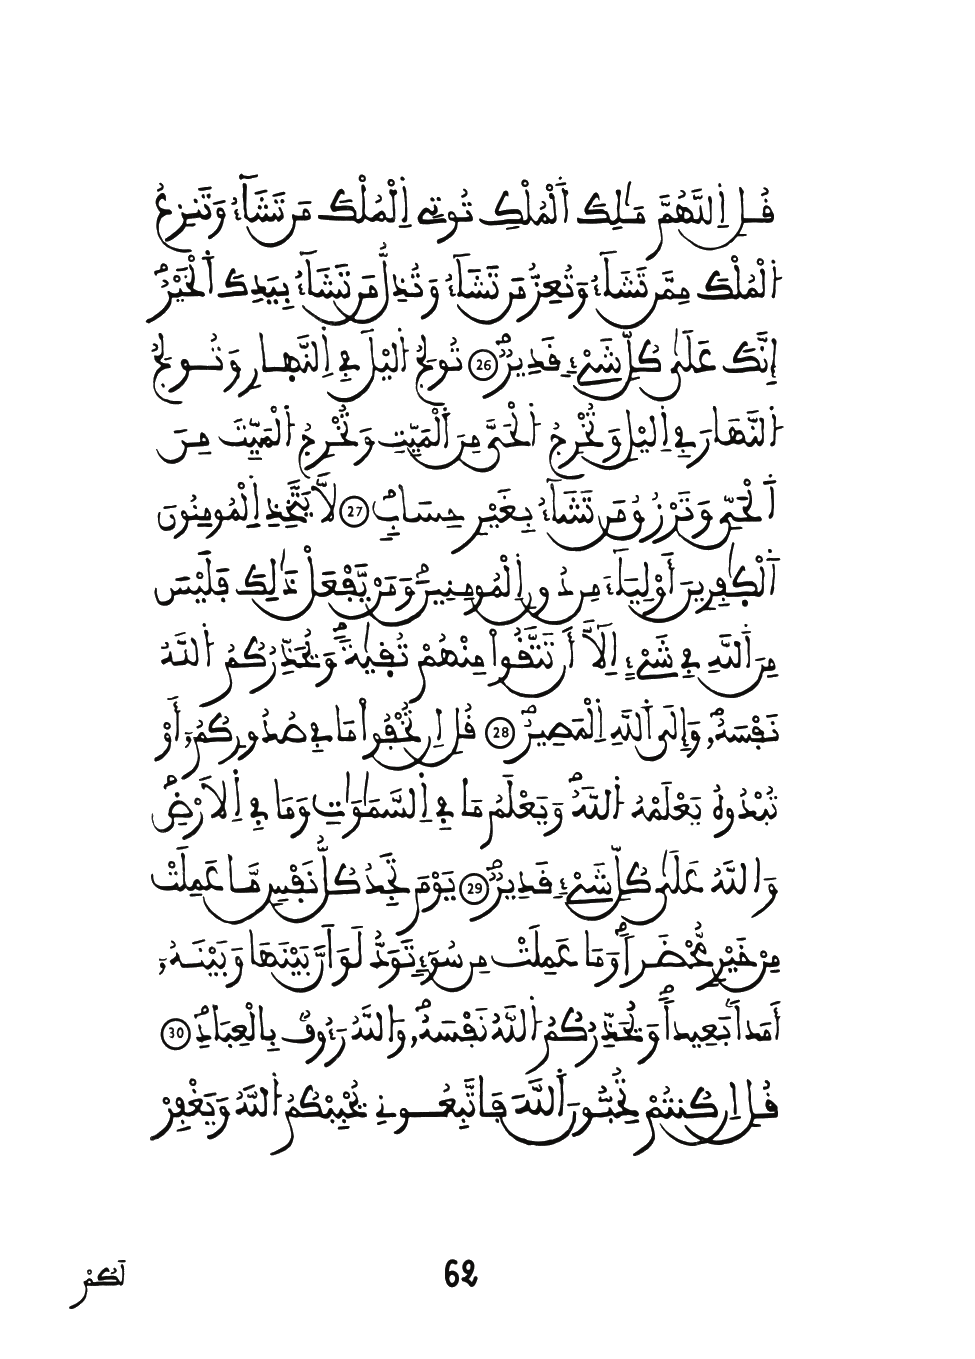 قُلِ اِ۬للَّهُمَّ مَٰلِكَ اَ۬لْمُلْكِ تُوتِے اِ۬لْمُلْكَ مَن تَشَآءُ وَتَنزِعُ
اُ۬لْمُلْكَ مِمَّن تَشَآءُ وَتُعِزُّ مَن تَشَآءُ وَتُذِلُّ مَن تَشَآءُ بِيَدِكَ اَ۬لْخَيْرُ
إِنَّكَ عَلَيٰ كُلِّ شَےْءٖ قَدِيرٞ 26 تُولِجُ اُ۬ليْلَ فِے اِ۬لنَّهارِ وَتُولِجُ
اُ۬لنَّهَارَ فِے اِ۬ليْلِ وَتُخْرِجُ اُ۬لْحَيَّ مِنَ اَ۬لْمَيِّتِ وَتُخْرِجُ اُ۬لْمَيِّتَ مِنَ
اَ۬لْحَيِّ وَتَرْزُقُ مَن تَشَآءُ بِغَيْرِ حِسَابٖ 27 لَّا يَتَّخِذِ اِ۬لْمُومِنُونَ
اَ۬لْكٰفِرِينَ أَوْلِيَآءَ مِن دُونِ اِ۬لْمُومِنِينَۖ وَمَنْ يَّفْعَلْ ذَٰلِكَ فَلَيْسَ
مِنَ اَ۬للَّهِ فِے شَےْءٍ اِلَّآ أَن تَتَّقُواْ مِنْهُمْ تُقٜيٰةٗۖ وَيُحَذِّرُكُمُ اُ۬للَّهُ
نَفْسَهُۥۖ وَإِلَي اَ۬للَّهِ اِ۬لْمَصِيرُۖ 28 قُلِ اِن تُخْفُواْ مَا فِے صُدُورِكُمُۥٓ أَوْ
تُبْدُوهُ يَعْلَمْهُ اُ۬للَّهُۖ وَيَعْلَمُ مَا فِے اِ۬لسَّمَٰوَٰتِ وَمَا فِے اِ۬لَارْضِۖ
وَاللَّهُ عَلَيٰ كُلِّ شَےْءٖ قَدِيرٞۖ 29 يَوْمَ تَجِدُ كُلُّ نَفْسٖ مَّا عَمِلَتْ
مِنْ خَيْرٖ مُّحْضَراٗۖ وَمَا عَمِلَتْ مِن سُوٓءٖ تَوَدُّ لَوَ اَنَّ بَيْنَهَا وَبَيْنَهُۥٓ
أَمَداَۢ بَعِيداٗۖ وَيُحَذِّرُكُمُ اُ۬للَّهُ نَفْسَهُۥۖ وَاللَّهُ رَءُوفُۢ بِالْعِبَادِۖ 30
قُلِ اِن كُنتُمْ تُحِبُّونَ اَ۬للَّهَ فَاتَّبِعُونِے يُحْبِبْكُمُ اُ۬للَّهُ وَيَغْفِرْ
62
لَكُمْ